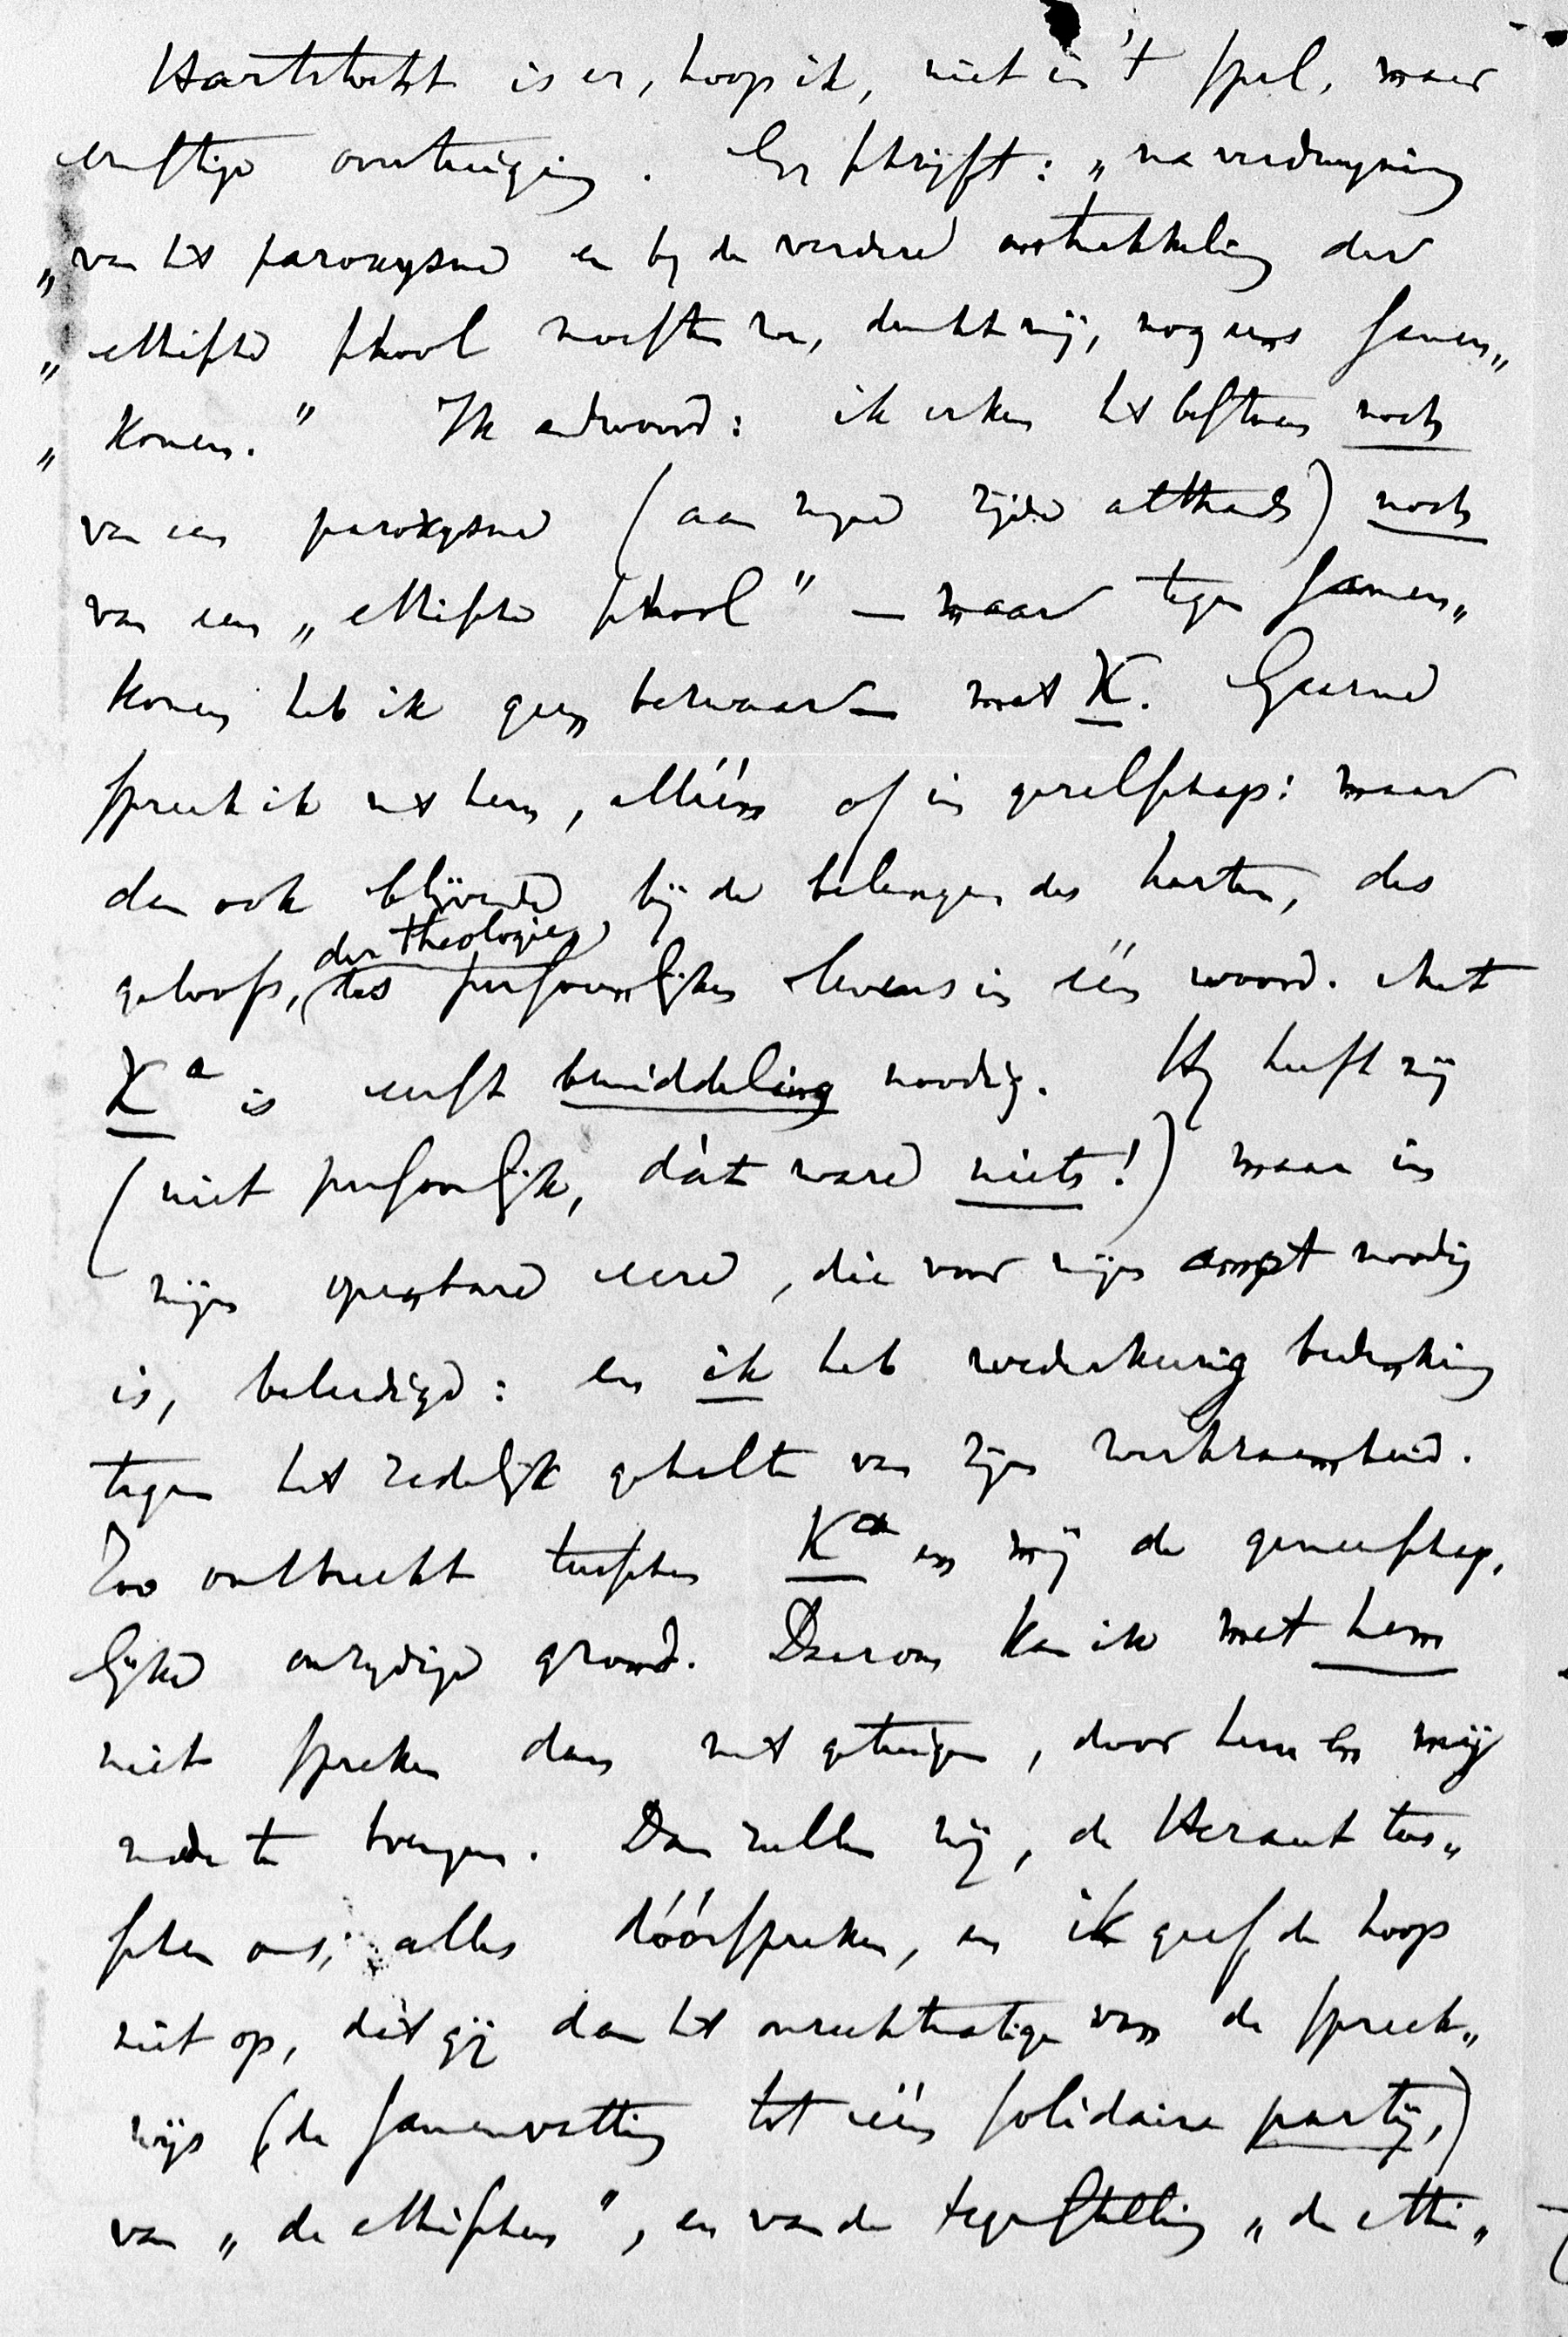 Hartstocht is er, hoop ik, niet in 't spel, maar
ernstige overtuiging. Gij schrijft: „na verdwijning
„van het paroxysme en bij de verdere ontwikkeling der
„ethische school moesten we, dunkt mij, nog eens samen„
„komen." Ik antwoord: ik erken het bestaan noch
van een paroxysme (aan mijne zijde althands) noch
van een „ethische school" — maar tegen samen„
komen heb ik geen bezwaar — met K. Gaarne
spreek ik met hem, alléén of in gezelschap: maar
dan ook blijvende bij de belangen des harten, des
geloofs, der theologie, des persoonlijken levens in één woord. Met
Ka is eerst bemiddeling noodig. Hij heeft mij
(niet persoonlijk, dàt ware niets!) maar in
mijn openbare eere, die voor mijn ampt noodig
is, beleedigd: en ik heb wederkeerig bedenking
tegen het zedelijk gehalte van zijn werkzaamheid.
Zoo ontbreekt tusschen Ka en mij de gemeenschap,
lijke onzijdige grond. Daarom kan ik met hem
niet spreken dan met getuigen, door hem en mij
mede te brengen. Dan zullen wij, de Heraut tus„
schen ons, alles dóórspreken, en ik geef de hoop
niet op, dat gij dan het onrechtmatige van de spreek„
wijs (de samenvatting tot één solidaire partij,)
van „de ethischen", en van de tegenstelling „de ethi„